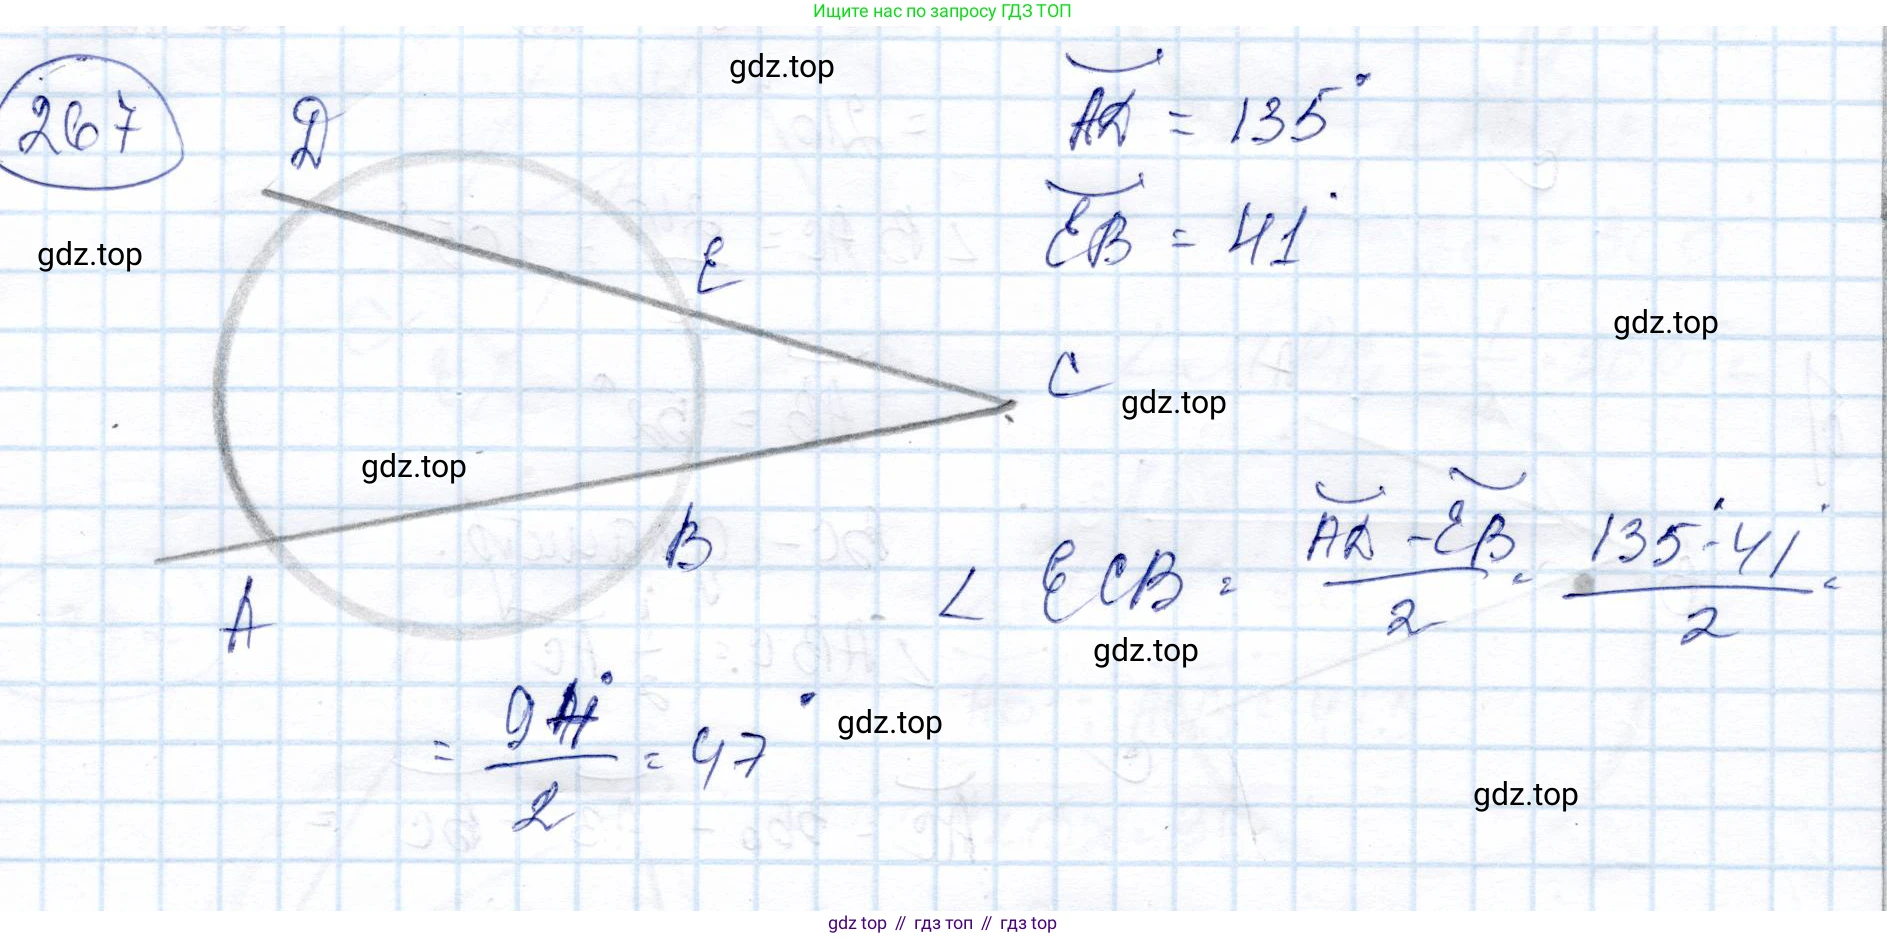 Ищите нас по запросу ГДЗ ТОП
267
gdz.top
D
AD = 135°
gdz.top
E
EB = 41°
gdz.top
C
gdz.top
gdz.top
B
A
∠ ECB = (AD - EB)/2 = (135° - 41°)/2 =
gdz.top
= 94°/2 = 47°
gdz.top
gdz.top
gdz top // гдз топ // гдз top